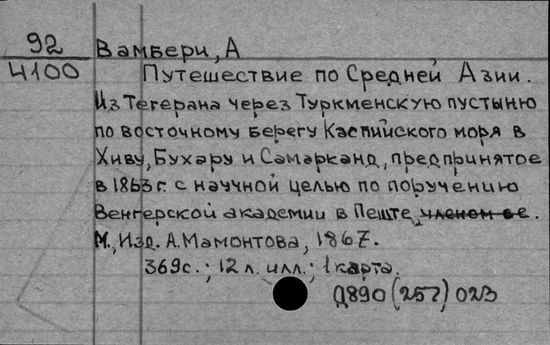 92
4100
Вамбери, А
Путешествие по Средней Азии.
Из Тегерана через Туркменскую пустыню
по восточному берегу Каспийского моря в
Хиву, Бухару и Самарканд, предпринятое
в 1863 г. с научной целью по поручению
Венгерской академии в Пеште, членом ее.
М., Изд. А. Мамонтова, 1867.
369с.; 12 л. илл.; 1 карта.
Д890(257)023